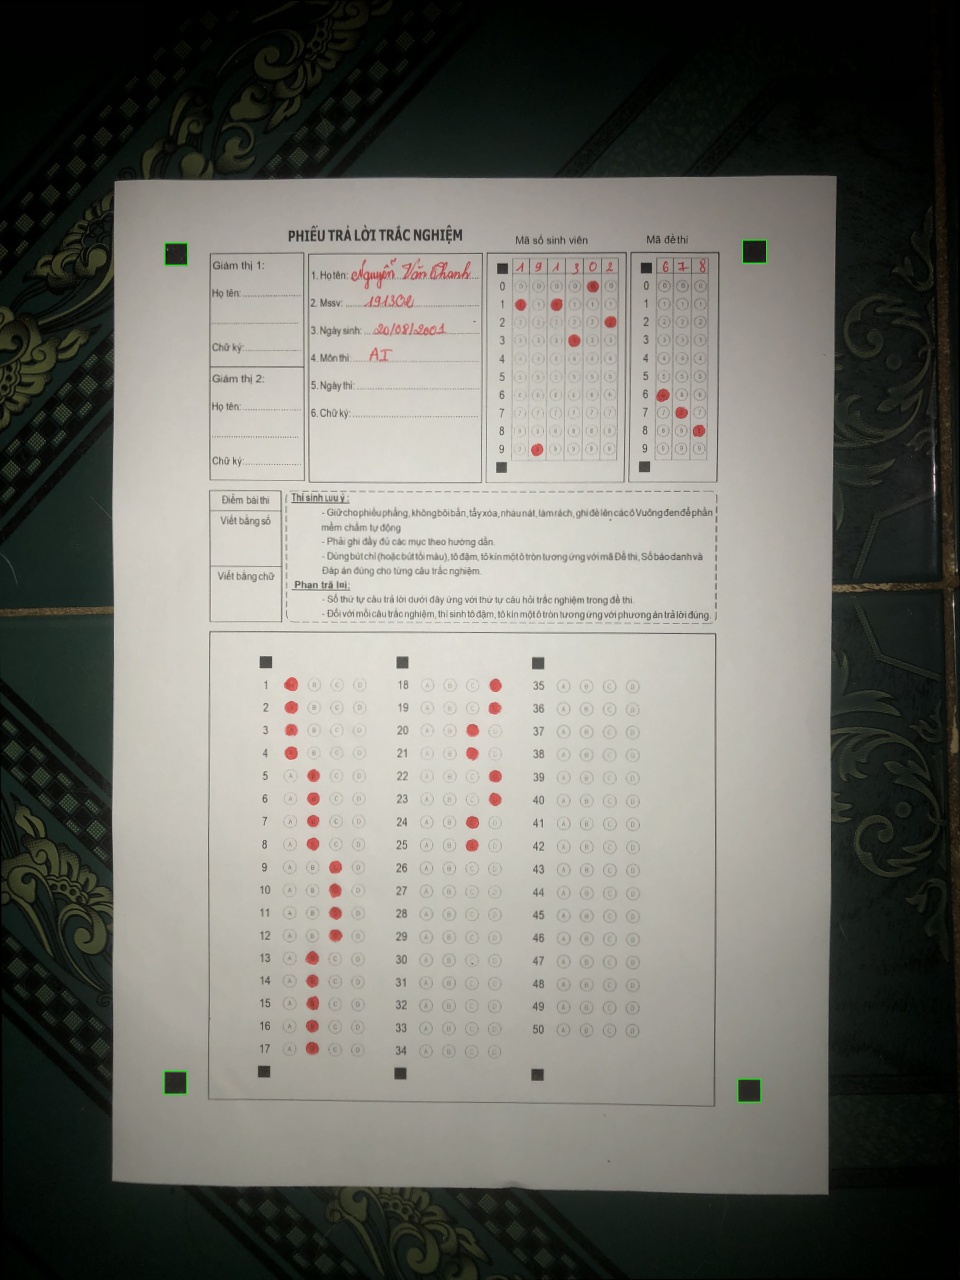 PHIẾU TRẢ LỜI TRẮC NGHIỆM
Giám thị 1:
Họ tên:
Chữ ký:
Giám thị 2:
Họ tên:
Chữ ký:
1. Họ tên: Nguyễn Văn Thanh
2. Mssv: 191302
3. Ngày sinh: 20/08/2001
4. Môn thi: AI
5. Ngày thi:
6. Chữ ký:
Mã số sinh viên
1 9 1 3 0 2
0
1
2
3
4
5
6
7
8
9
Mã đề thi
6 7 8
0
1
2
3
4
5
6
7
8
9
Điểm bài thi
Viết bằng số
Viết bằng chữ
Thí sinh lưu ý:
- Giữ cho phiếu phẳng, không bôi bẩn, tẩy xóa, nhàu nát, làm rách, ghi đè lên các ô Vuông đen để phần
mềm chấm tự động
- Phải ghi đầy đủ các mục theo hướng dẫn.
- Dùng bút chì (hoặc bút tối màu), tô đậm, tô kín một ô tròn tương ứng với mã Đề thi, Số báo danh và
Đáp án đúng cho từng câu trắc nghiệm.
Phần trả lời:
- Số thứ tự câu trả lời dưới đây ứng với thứ tự câu hỏi trắc nghiệm trong đề thi.
- Đối với mỗi câu trắc nghiệm, thí sinh tô đậm, tô kín một ô tròn tương ứng với phương án trả lời đúng.
1 B C D
2 B C D
3 B C D
4 B C D
5 A C D
6 A C D
7 A C D
8 A C D
9 A B D
10 A B D
11 A B D
12 A B D
13 A C D
14 A C D
15 A C D
16 A C D
17 A C D
18 A B C
19 A B C
20 A B D
21 A B D
22 A B C
23 A B C
24 A B D
25 A B D
26 A B C D
27 A B C D
28 A B C D
29 A B C D
30 A B C D
31 A B C D
32 A B C D
33 A B C D
34 A B C D
35 A B C D
36 A B C D
37 A B C D
38 A B C D
39 A B C D
40 A B C D
41 A B C D
42 A B C D
43 A B C D
44 A B C D
45 A B C D
46 A B C D
47 A B C D
48 A B C D
49 A B C D
50 A B C D